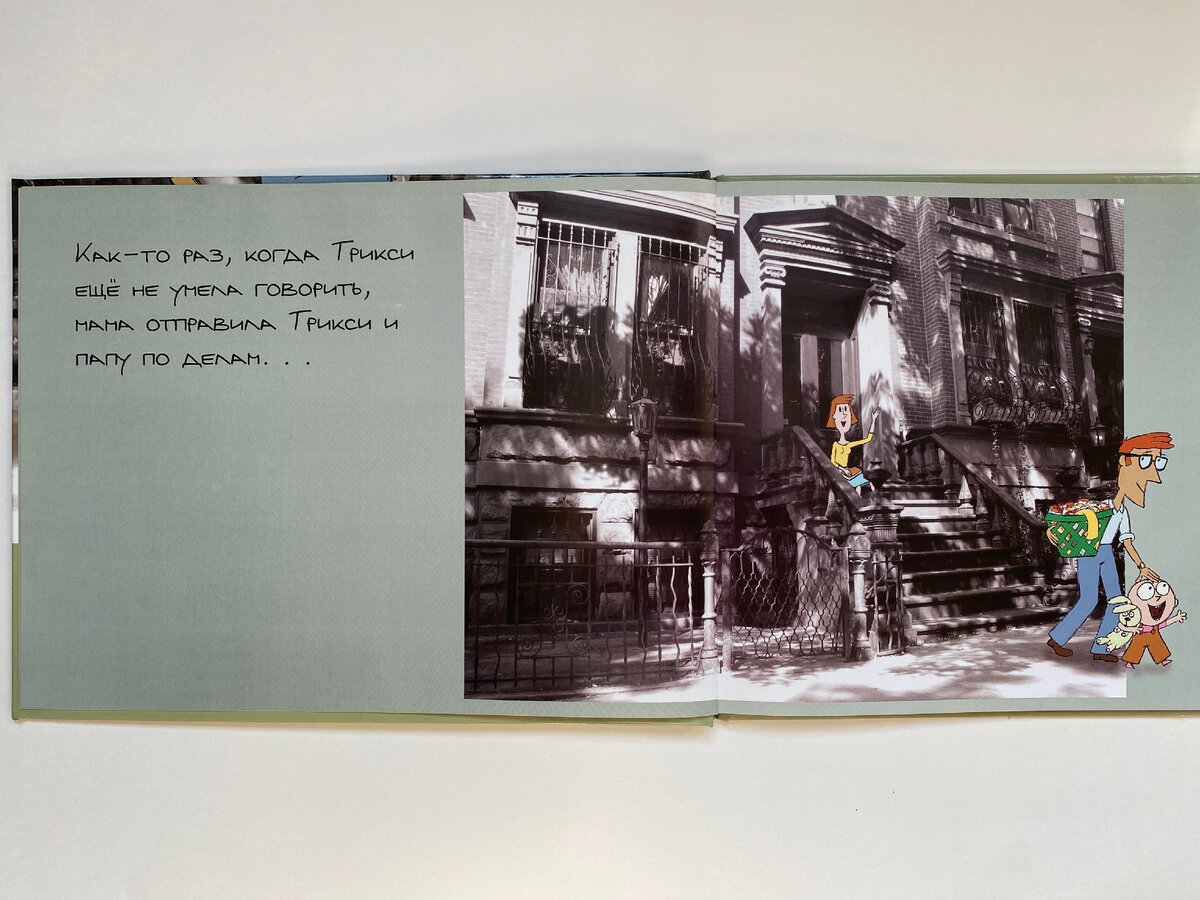 Как-то раз, когда Трикси
ещё не умела говорить,
мама отправила Трикси и
папу по делам. . .